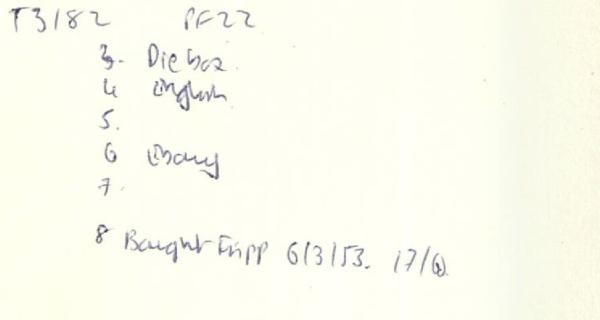 T3182 PF22
3. Die box.
4 English
5.
6 Ebony
7.
8 Bought Fripp 6/3/53. 17/6.